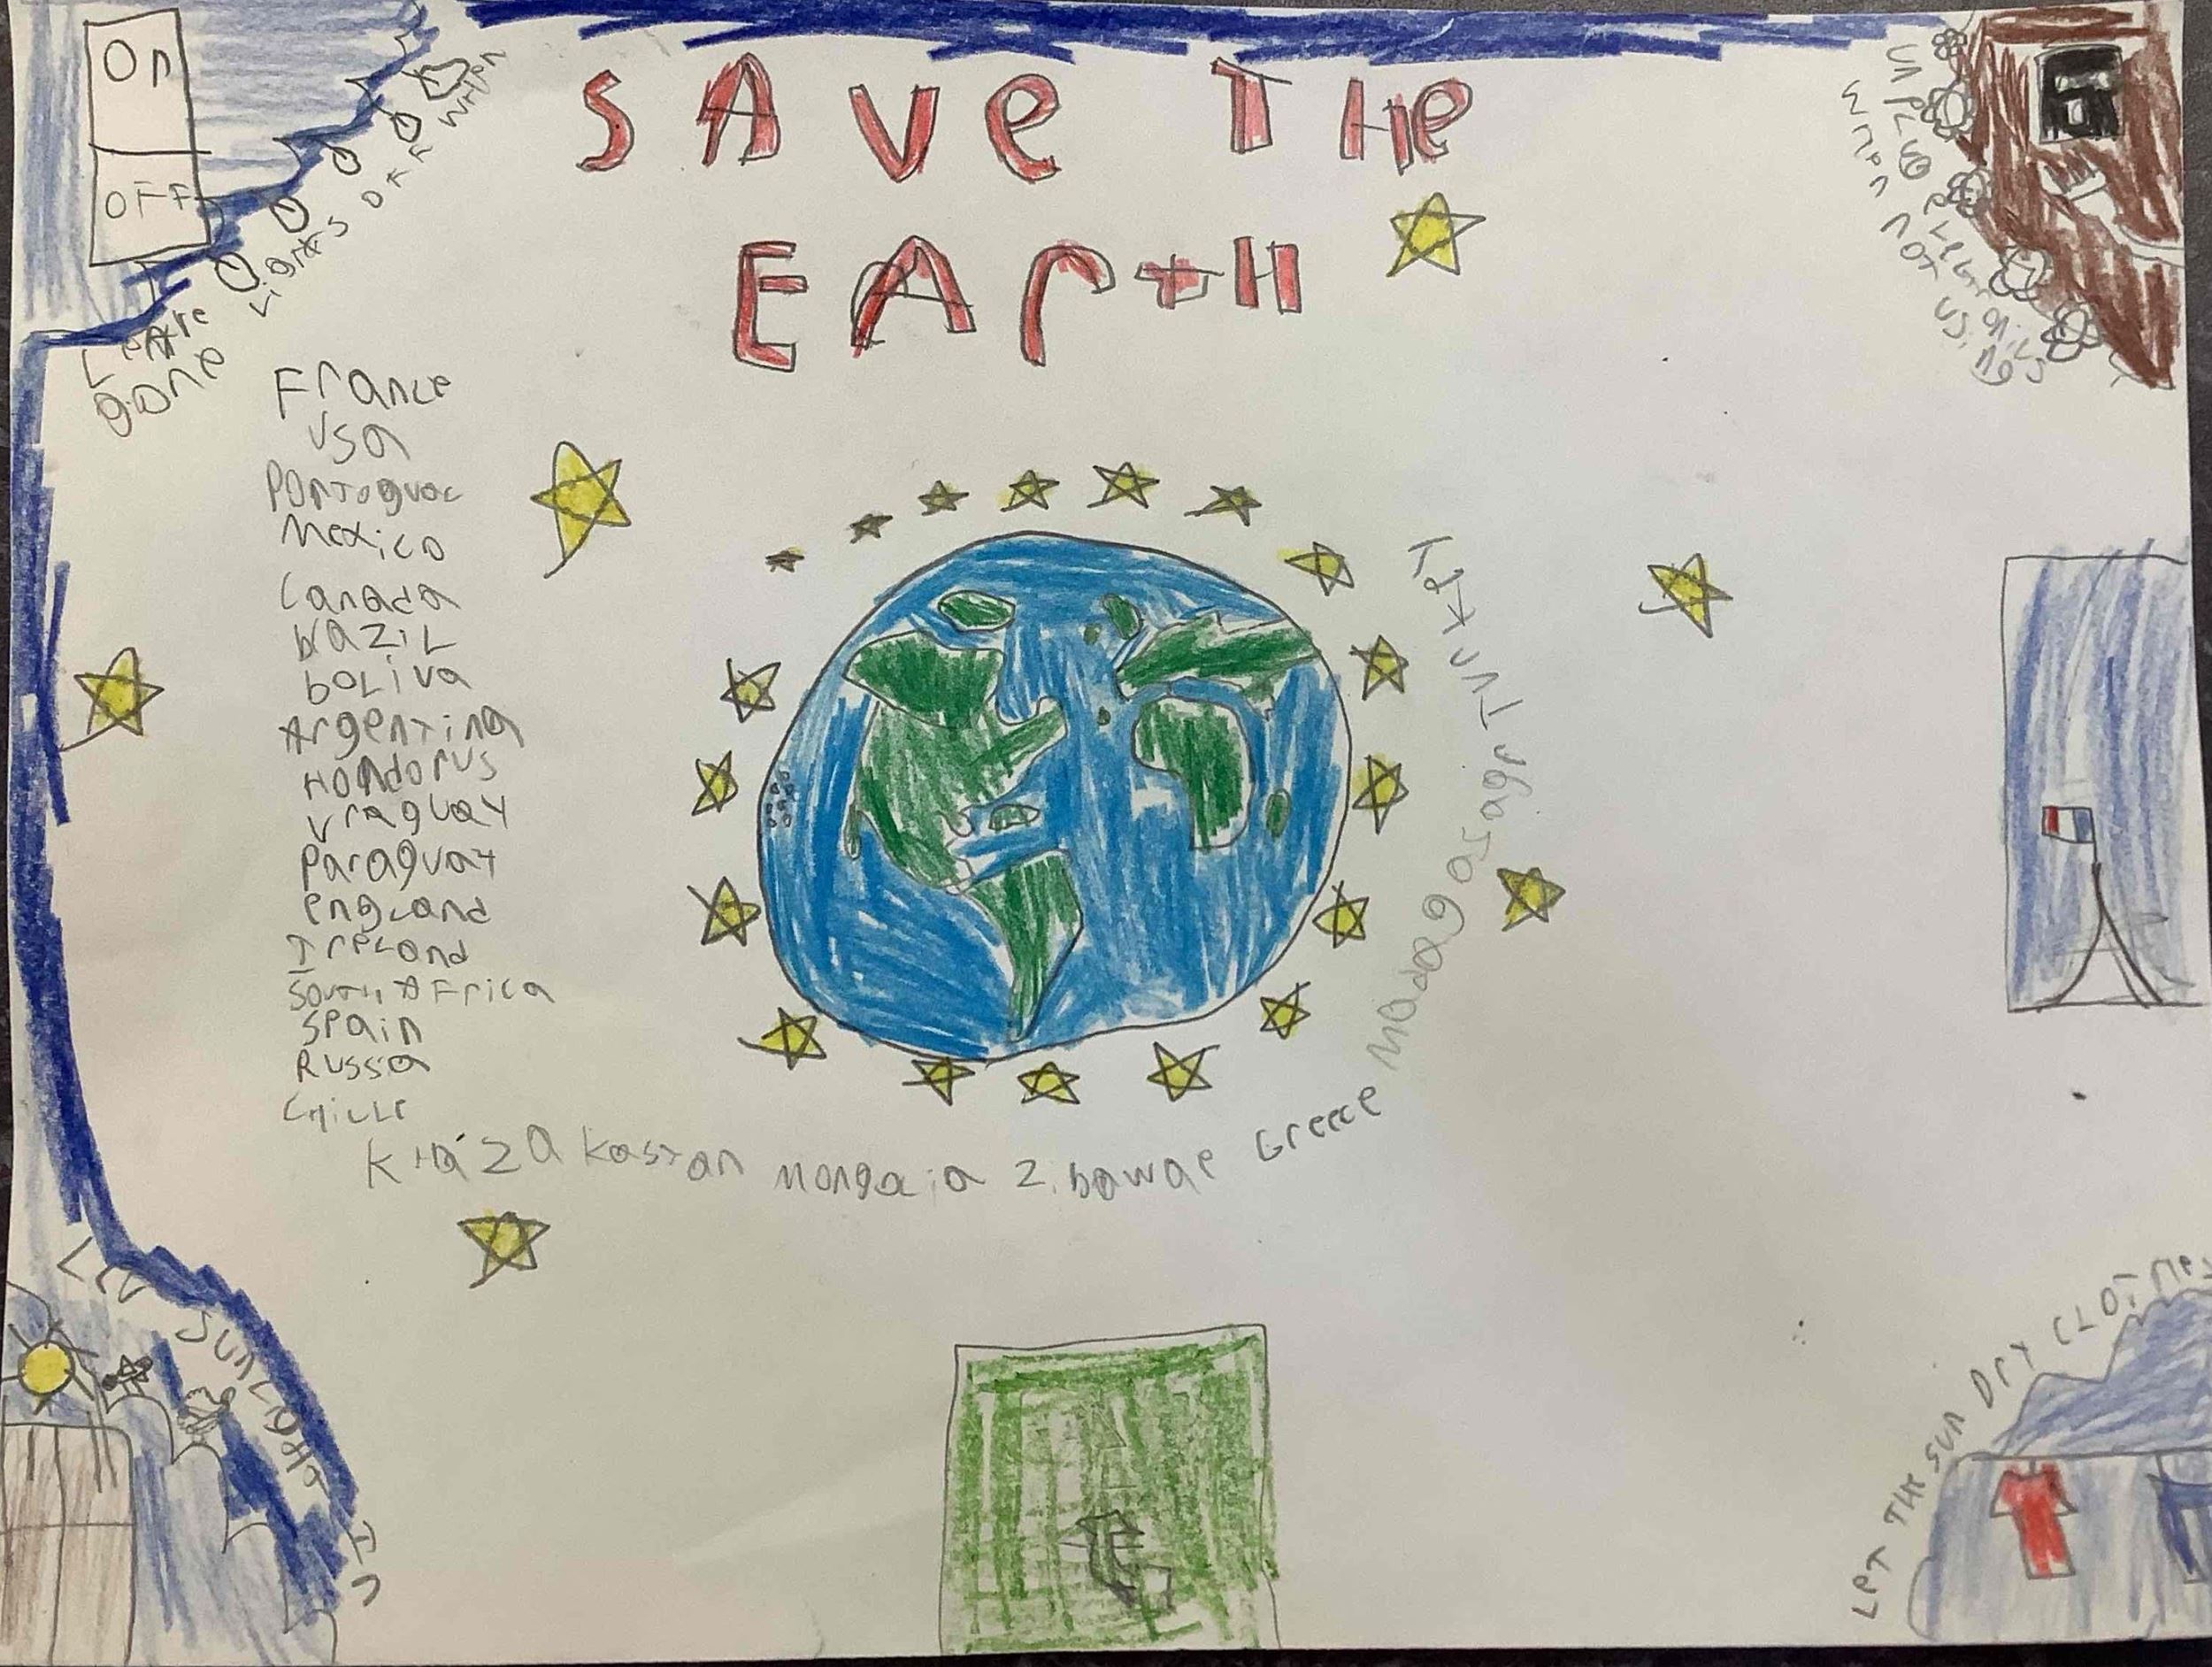 On
OFF
SAVe THe
EArtH
Lights OFF when
gone
UnPLUG electronics
when not using
France
USA
Mexico
Canada
brazil
boliva
Argentina
Hondorus
Uraguay
Paraguay
england
Ireland
South Africa
Spain
Russia
Chille
KHazakastan Mongolia Zibawae Greece Madagasagr
Let
sunlight
in
Let the sun Dry CLothes